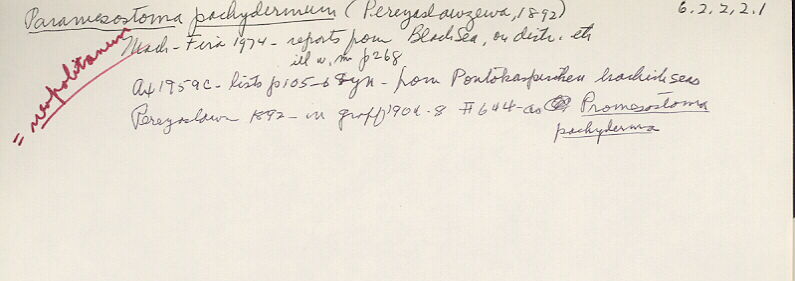 Paramesostoma pachydermum (Pereyaslawzewa, 1892) 6.2.2.2.1
= neopolitanum
Mack-Fira 1974 - reports from Black Sea, on distr. etc
ill w, m p268
Ax 1959c - lists p105-6 & syn - from Pontokaspischen brackish seas
Pereyaslawz 1892 - in graff 1904-8 #644 - as Promesostoma
pachyderma